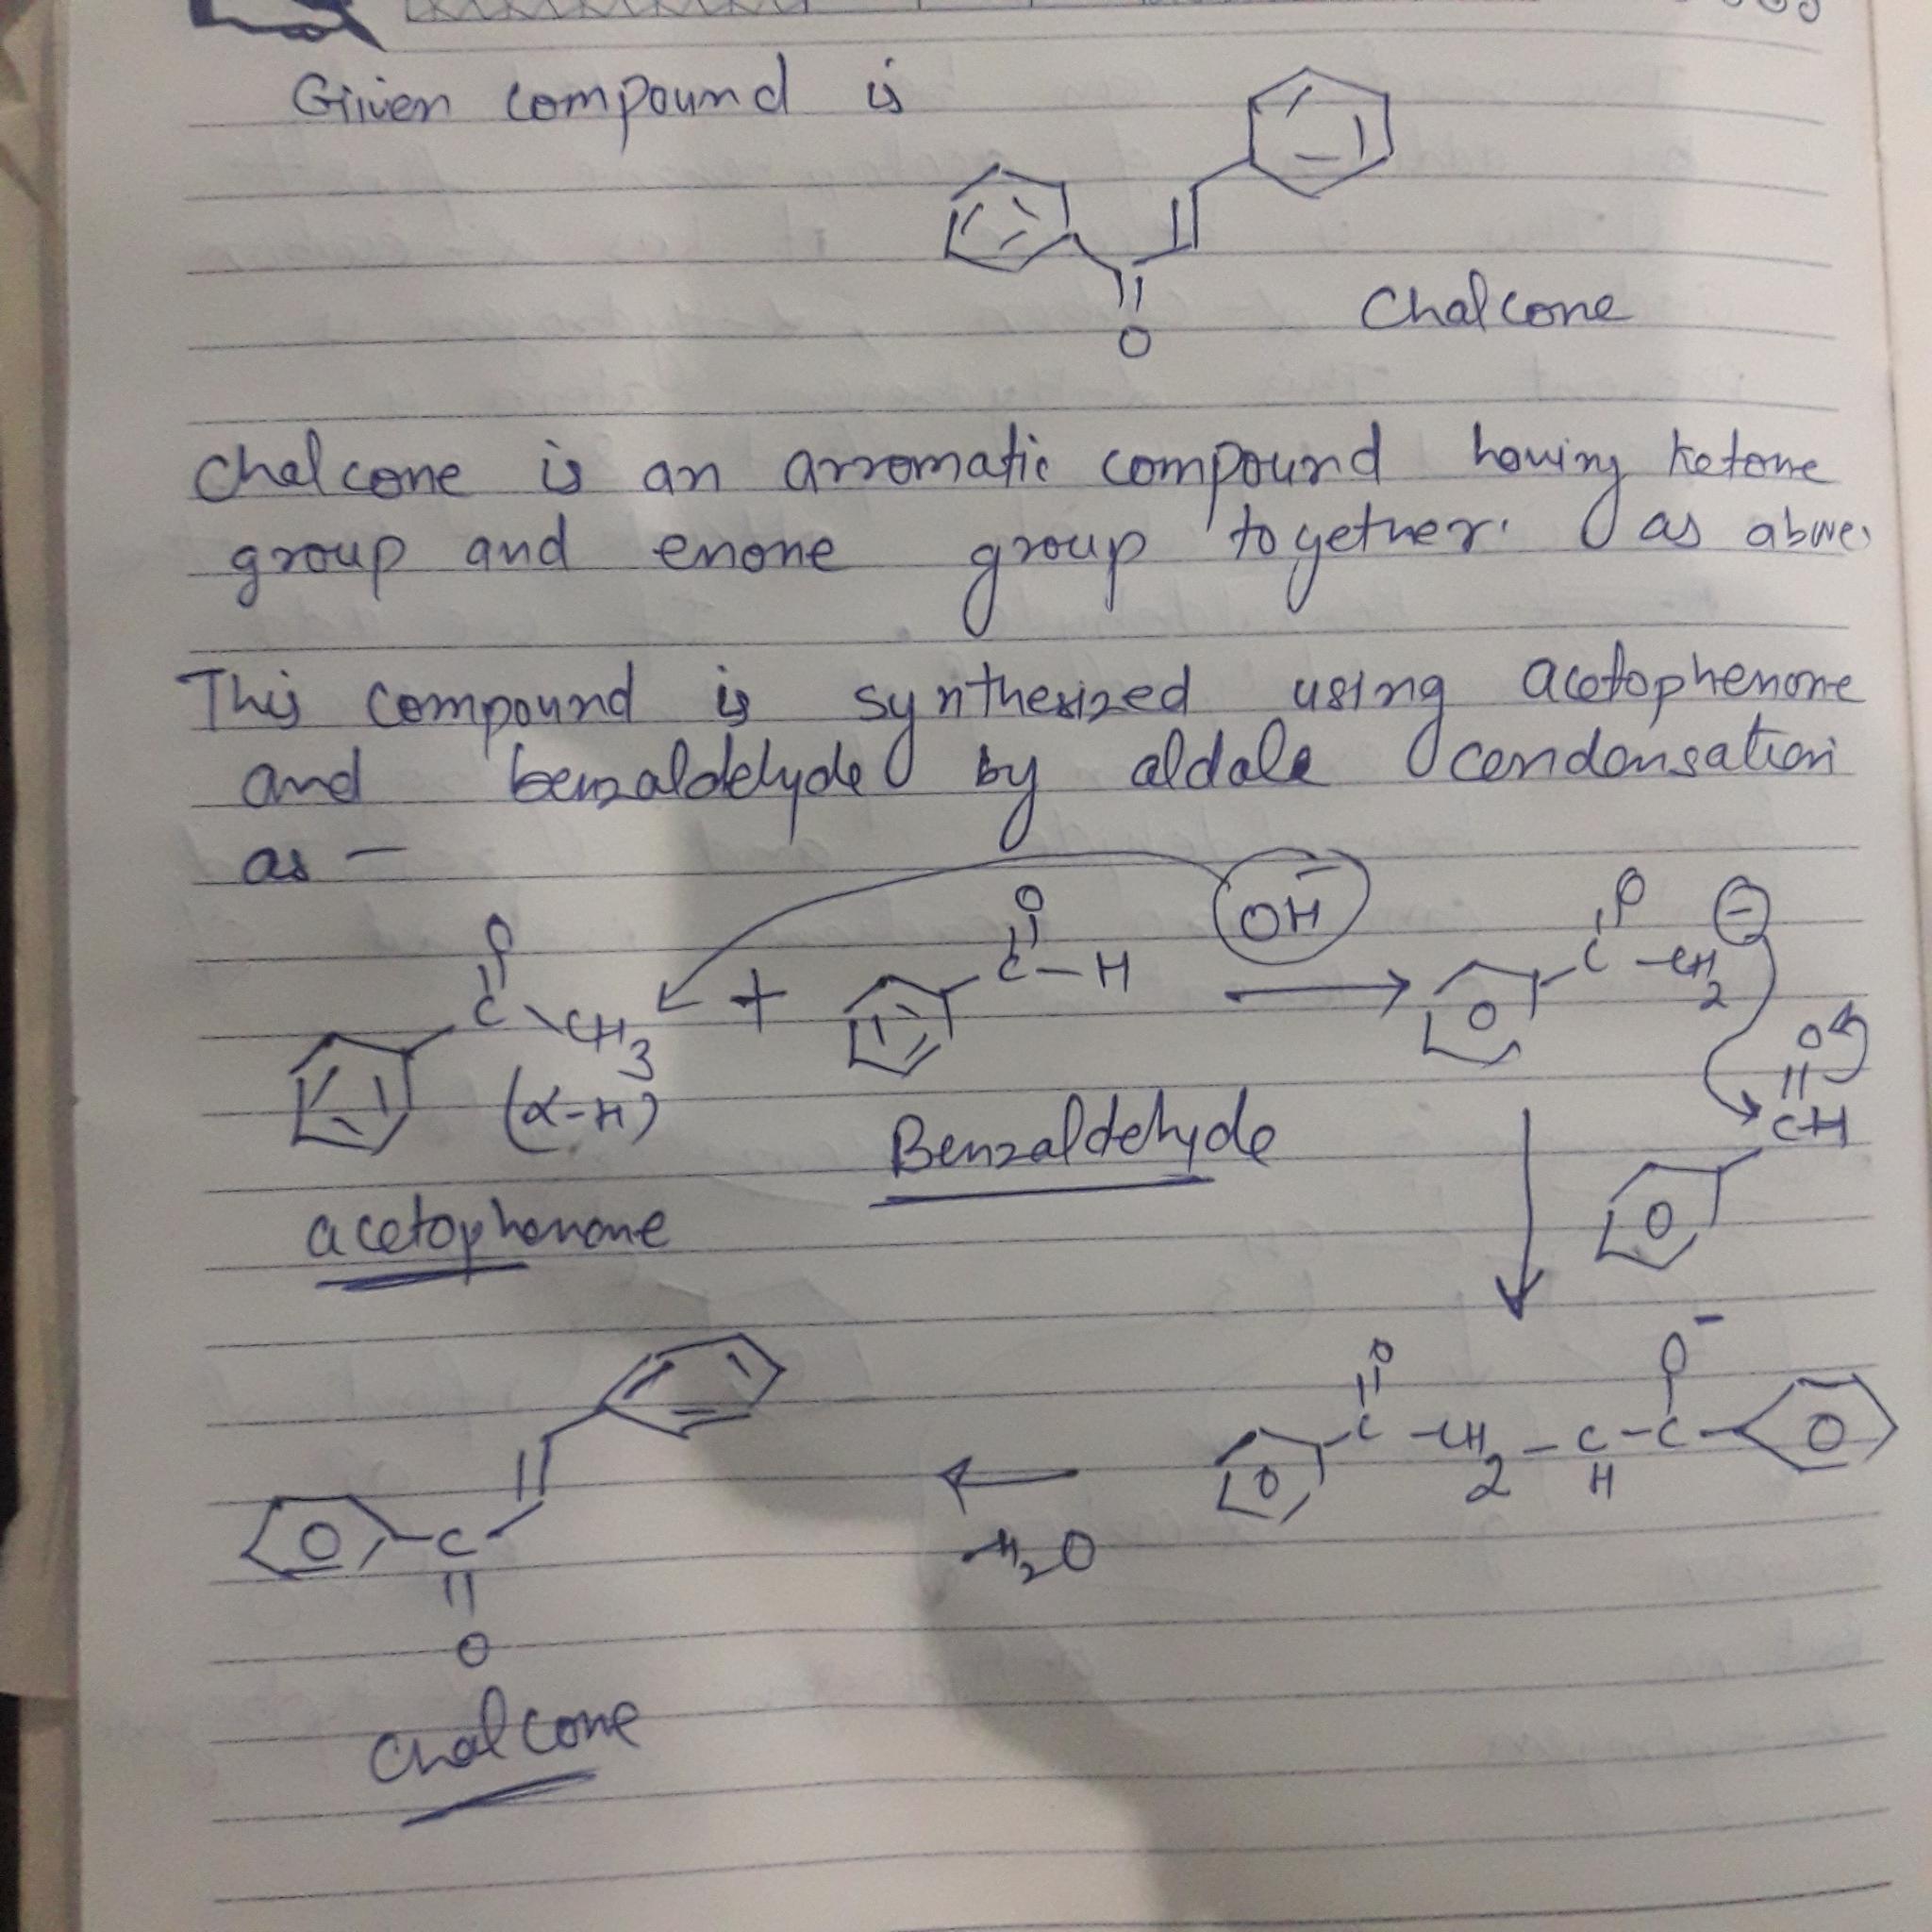 Given compound is
O
Chalcone
Chalcone is an arromatic compound having ketone
group and enone group together. as above.
This compound is synthesized using acetophenone
and benzaldehyde by aldale condensation
as —
O
C
CH3
(α-H)
+
O
C-H
OH-
O
C-CH2
-
O
CH
acetophenone
Benzaldehyde
O
C-CH2-C-C
H
O-
-H2O
C
O
Chalcone